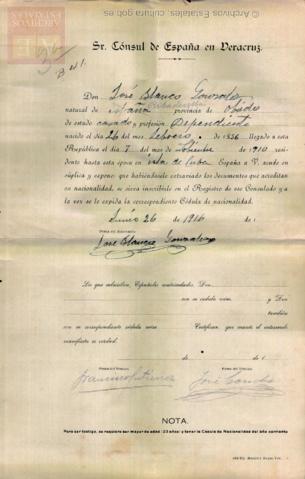 © Archivos Estatales, cultura.gob.es
ARCHIVOS
ESTATALES
Sr. Cónsul de España en Veracruz.
Don José Blanco Gonzalez
natural de España provincia de Oviedo
de estado casado y profesión Dependiente
nacido el día 26 del mes Febrero de 1886 llegado a esta
República el día 7 del mes de de 1910 resi-
dente hasta esta época en Isla de Cuba España a V. acude en
súplica y expone: que habiéndosele extraviado los documentos que acreditan
su nacionalidad, se sirva inscribirle en el Registro de ese Consulado y a
la vez se le expida la correspondiente Cédula de nacionalidad.
Junio 26 de 1916 de 1
FIRMA DEL INTERESADO
José Blanco Gonzalez
Los que subscriben, Españoles matriculados, Don
con su cédula núm. y Don
también
con su correspondiente cédula núm. Certifican, que cuanto el interesado
manifiesta es verdad.
de de 1
FIRMA DEL TESTIGO, FIRMA DEL TESTIGO,
José
NOTA.
Para ser testigo, se requiere ser mayor de edad (23 años) y tener la Cédula de Nacionalidad del año corriente